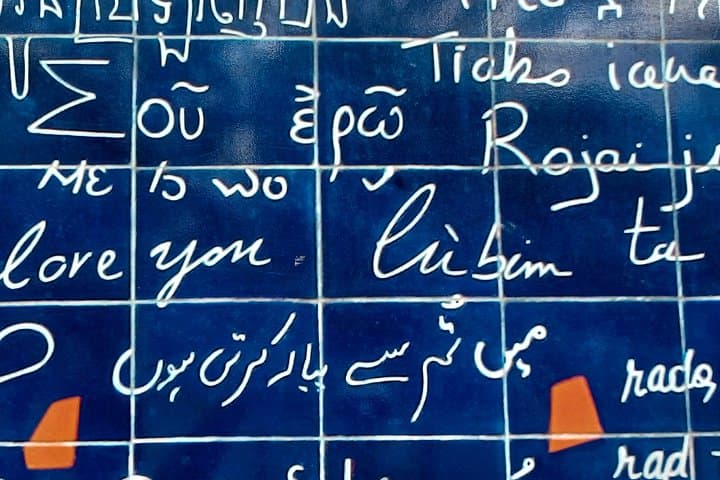 Σοῦ ἐρῶ
Rojai
ME IS WO
love you lùbim ta
میں تُم سے پیار کرتی ہوں
rado
rad